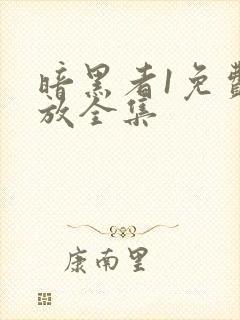 暗黑者1免费
放全集
康南里